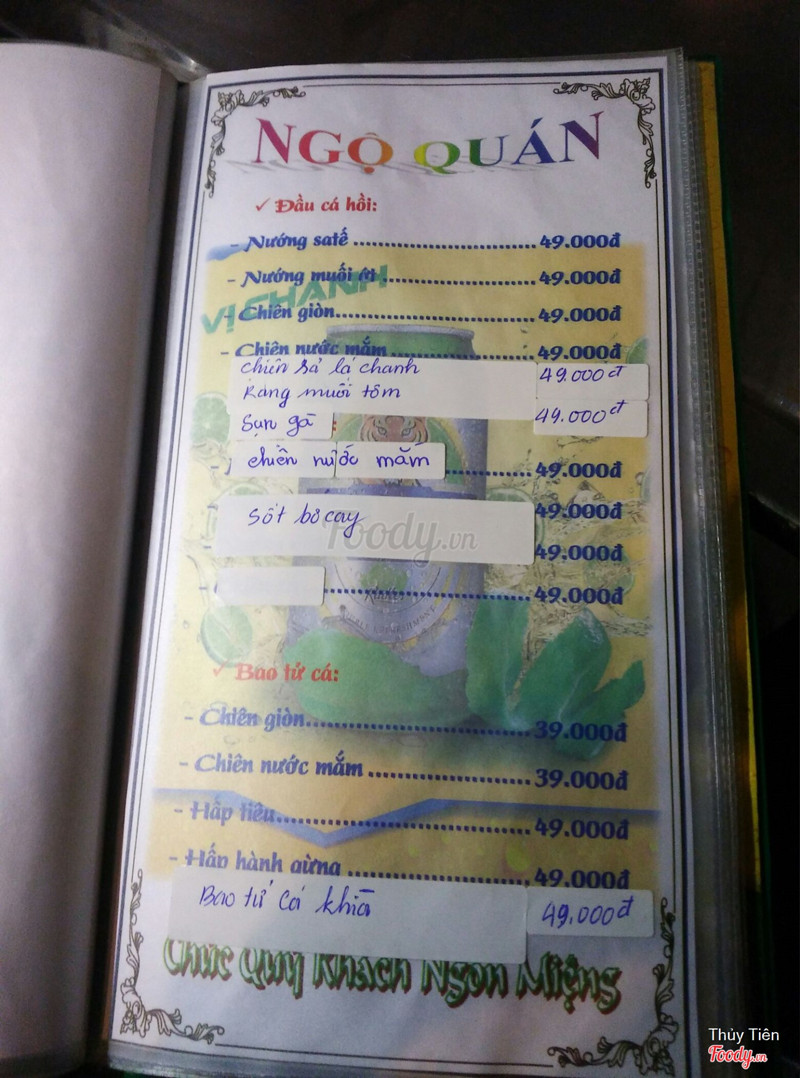 NGỘ QUÁN
✓ Đầu cá hồi:
- Nướng satế ........................... 49.000đ
- Nướng muối ớt ........................... 49.000đ
VỊ CHANH
- Chiên giòn ........................... 49.000đ
- Chiên nước mắm ........................... 49.000đ
chiên sả lá chanh 49.000đ
Rang muối tôm
Sụn gà 49.000đ
chiên nước mắm ........... 49.000đ
Sốt bơ cay 49.000đ
Foody.vn
49.000đ
........................... 49.000đ
✓ Bao tử cá:
- Chiên giòn ........................... 39.000đ
- Chiên nước mắm ........................... 39.000đ
- Hấp tiêu ........................... 49.000đ
- Hấp hành gừng ........................... 49.000đ
Bao tử cá khìa 49.000đ
Chúc Quý Khách Ngon Miệng
Thủy Tiên
Foody.vn